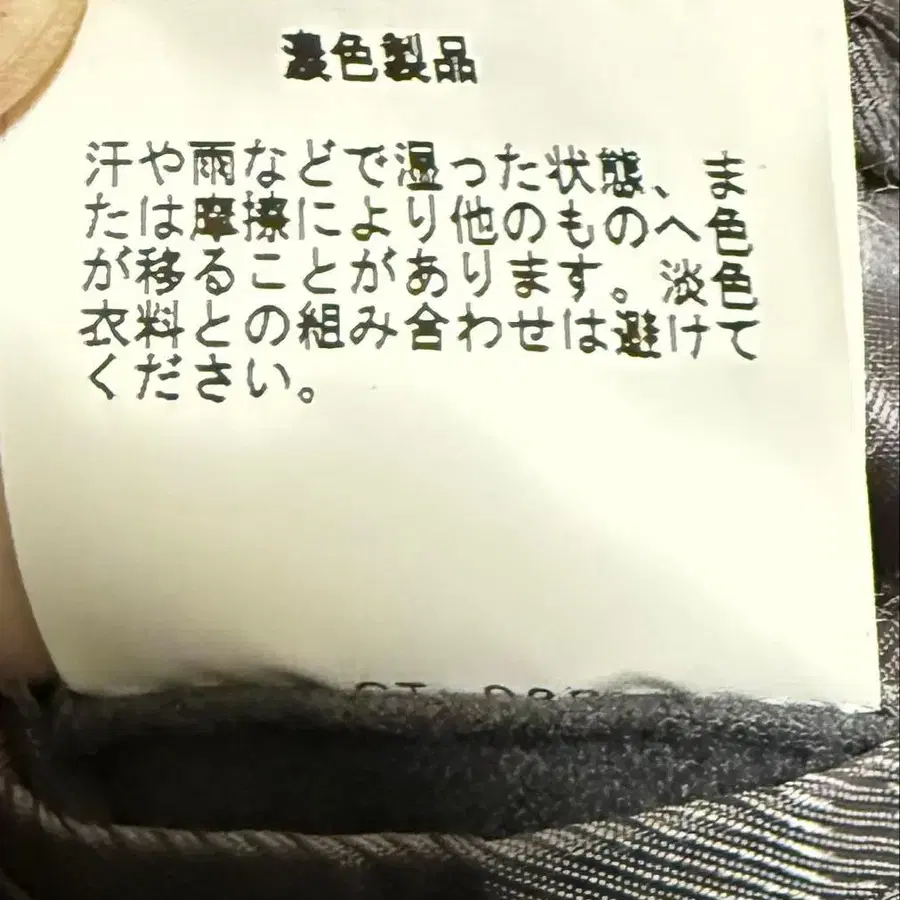 濃色製品
汗や雨などで湿った状態、ま
たは摩擦により他のものへ色
が移ることがあります。淡色
衣料との組み合わせは避けて
ください。